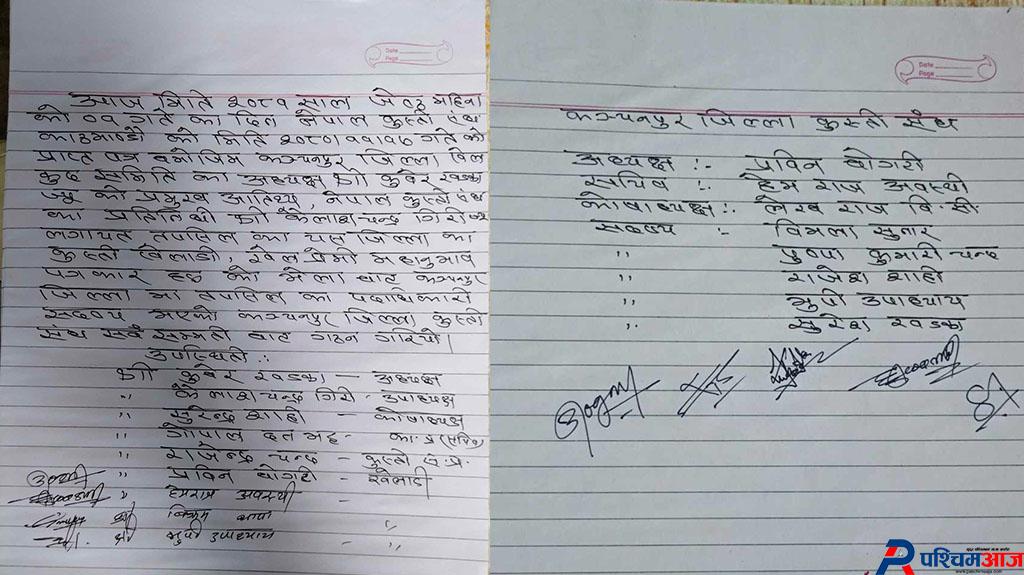 Date
Page
आज मिति २०८१ साल जेठ महिना
को ०९ गते का दिन नेपाल कुस्ती संघ
काठमाण्डौ को मिति २०८०।१२।१६ गते को
प्राप्त पत्र बमोजिम कञ्चनपुर जिल्ला खेल
कुद समिति का अध्यक्ष श्री कुबेर खड्का
ज्यू को प्रमुख आतिथ्य, नेपाल कुस्ती संघ
का प्रतिनिधी श्री कैलाश चन्द्र गिरी
लगायत तपसिल का यस जिल्ला का
कुस्ती खेलाडी, खेल प्रेमी महानुभाव
पत्रकार हरु को भेला बाट कञ्चनपुर
जिल्ला मा तपसिल का पदाधिकारी
सदस्य भएको कञ्चनपुर जिल्ला कुस्ती
संघ सर्व सम्मती बाट गठन गरियो।
उपस्थिती :
श्री कुबेर खड्का - अध्यक्ष
,, कैलाश चन्द्र गिरी - उपाध्यक्ष
,, सुरेन्द्र शाही - कोषाध्यक्ष
,, गोपाल दत्त भट्ट - का.प्र (सचिव)
,, राजेन्द्र चन्द - कुस्ती सं.प्र.
,, प्रविन बोगटी - खेलाडी
,, हेमराज अवस्थी
विक्रम थापा ,,
भुपी उपाध्याय - ,,
Date
Page
कञ्चनपुर जिल्ला कुस्ती संघ
अध्यक्ष :- प्रविन बोगटी
सचिव :- हेम राज अवस्थी
कोषाध्यक्ष :- लेख राज वि.सी.
सदस्य :- विमला सुनार
,, पुष्पा कुमारी चन्द
,, राजेश शाही
,, भुपी उपाध्याय
,, सुरेश खड्का
पश्चिमआज